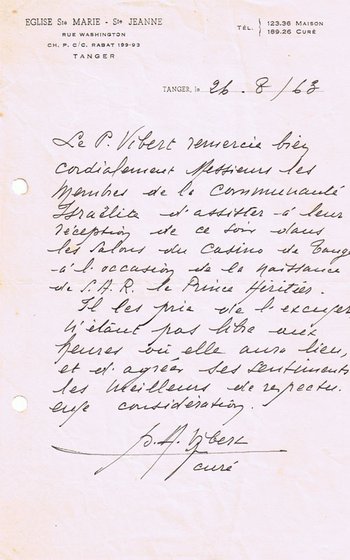 EGLISE Ste MARIE - Ste JEANNE
RUE WASHINGTON
CH. P. C/C. RABAT 199-93
TANGER
TÉL. : 123.36 MAISON
189.26 CURÉ
TANGER, le 26. 8/63
Le P. Vibert remercie bien
cordialement Messieurs les
Membres de la Communauté
Israélite d'assister à leur
réception de ce soir dans
les salons du Casino de Tanger
à l'occasion de la naissance
de S.A.R. le Prince Héritier.
Il les prie de l'excuser
n'étant pas libre aux
heures où elle aura lieu,
et d'agréer ses sentiments
les meilleurs de respectu-
euse considération.
Vibert
curé